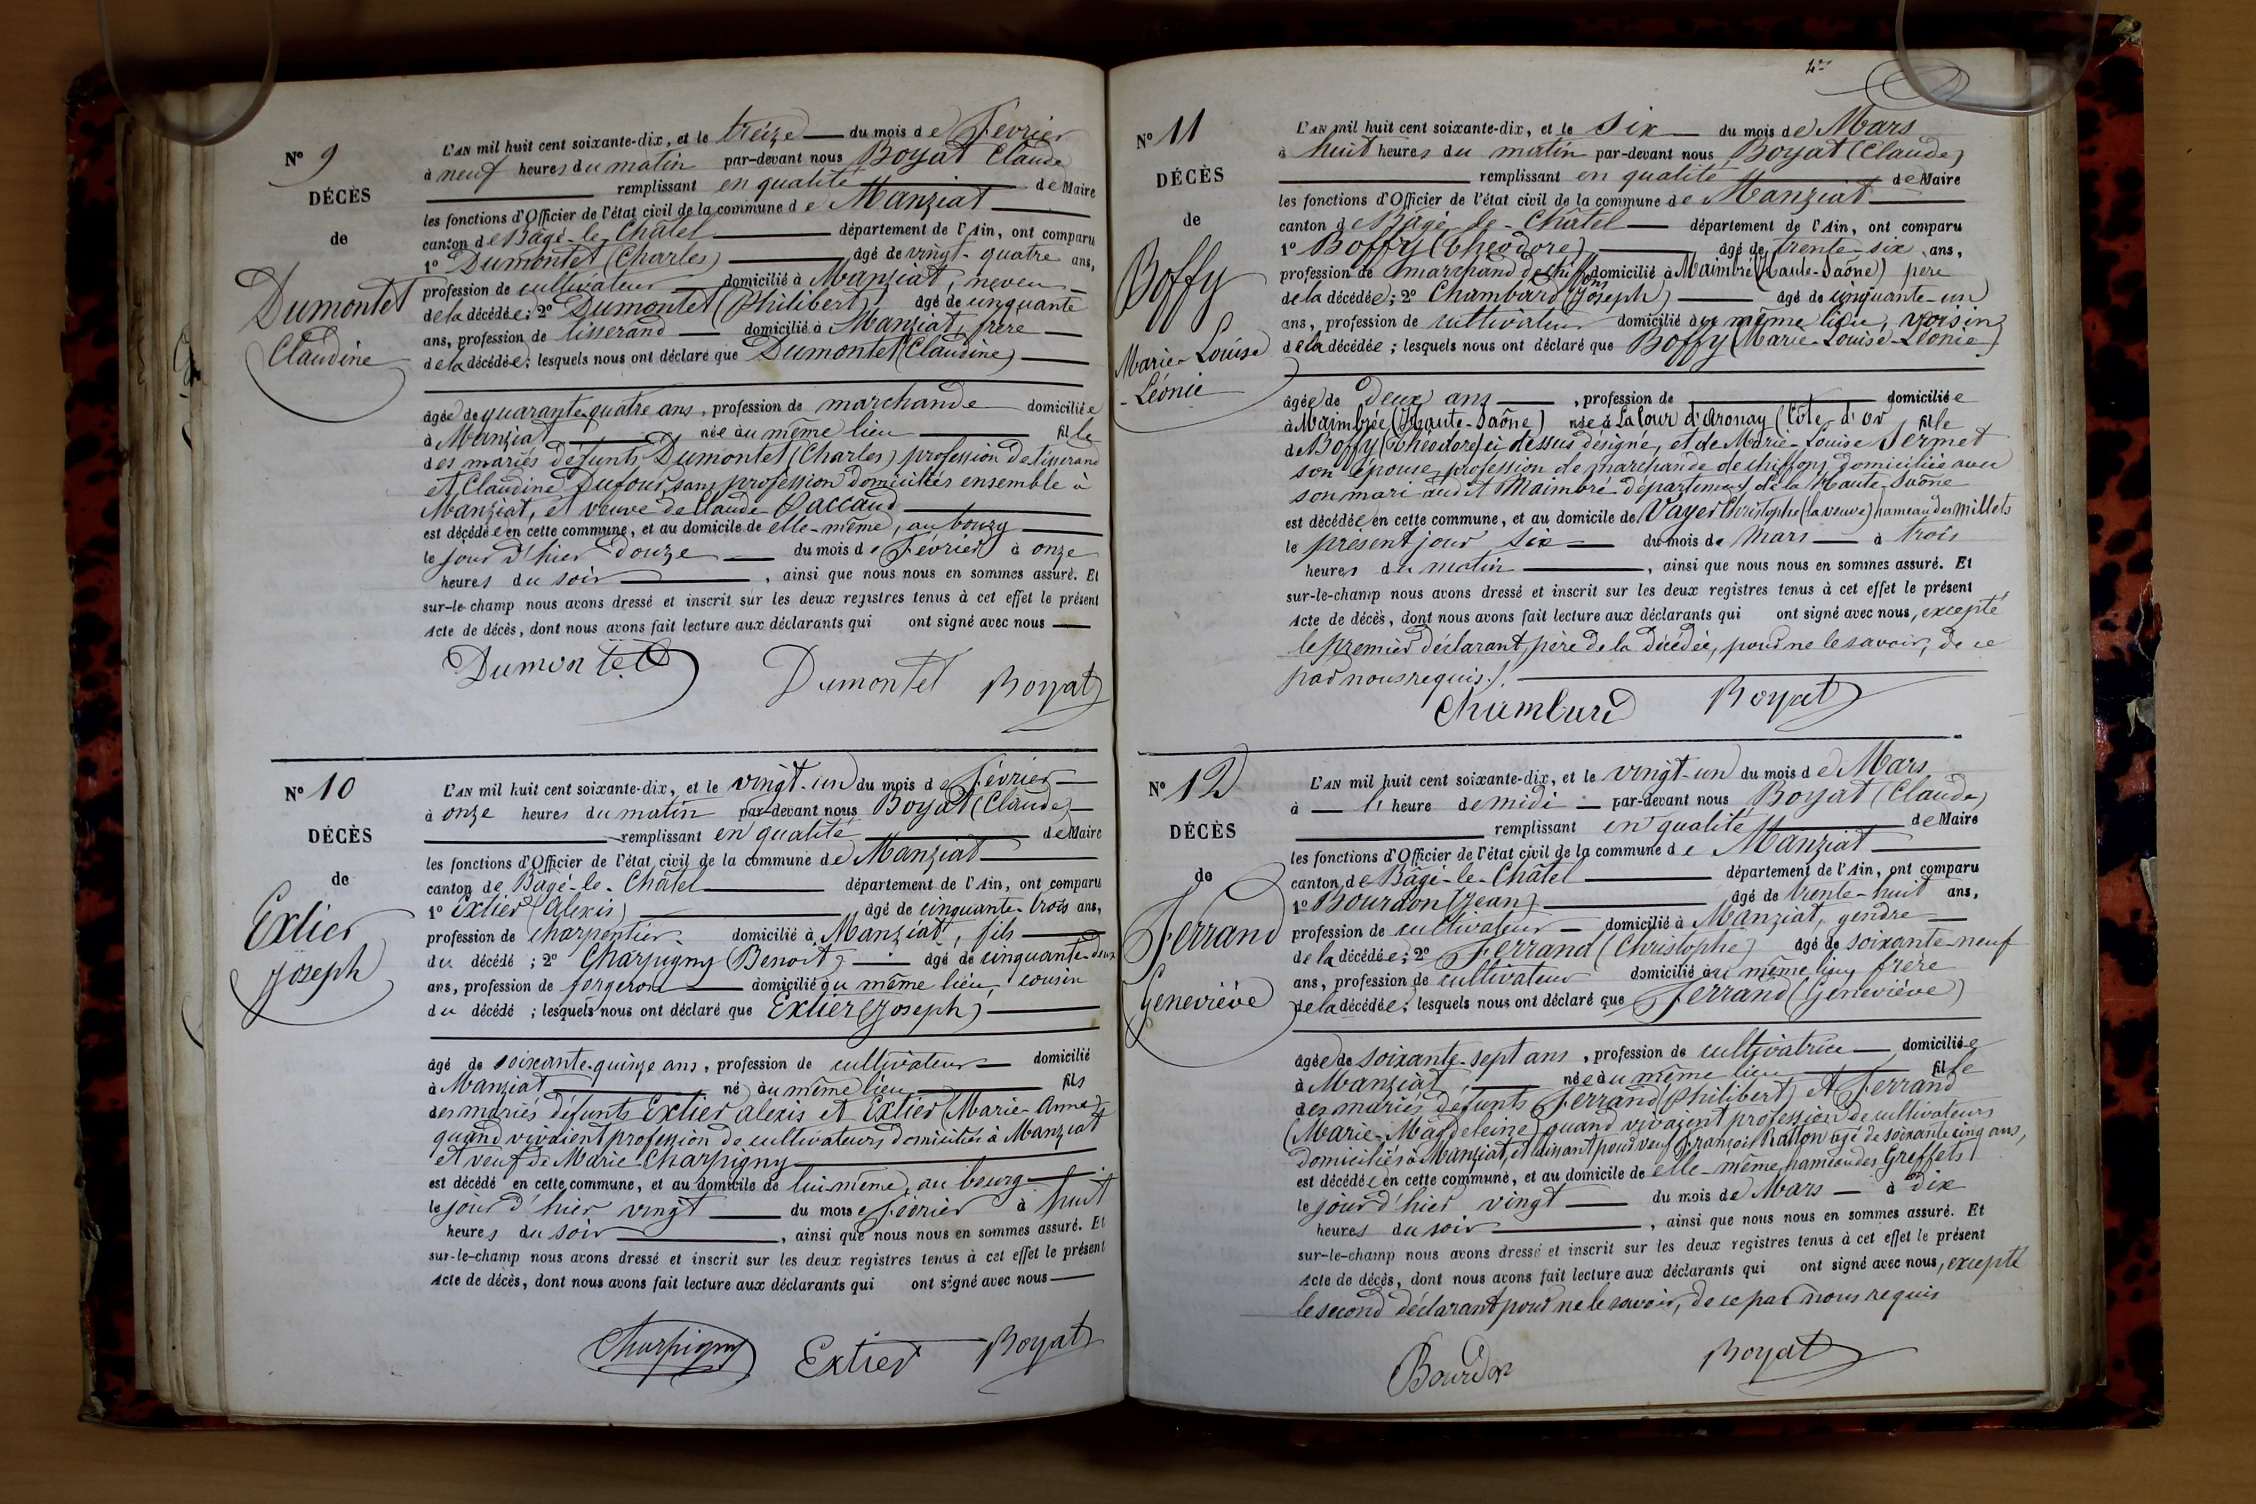 N° 9
DÉCÈS
de
Dumontet
Claudine
L'AN mil huit cent soixante-dix, et le treize du mois de Février
à neuf heures du matin par-devant nous Boyat Claude
remplissant en qualité de Maire
les fonctions d'Officier de l'état civil de la commune de Manziat
canton de Bâgé-le-Châtel département de l'Ain, ont comparu
1° Dumontet (Charles) âgé de vingt-quatre ans,
profession de cultivateur domicilié à Manziat, neveu
de la décédée; 2° Dumontet (Philibert) âgé de cinquante
ans, profession de tisserand domicilié à Manziat, frère
de la décédée; lesquels nous ont déclaré que Dumontet (Claudine)
âgée de quarante-quatre ans, profession de marchande domiciliée
à Manziat née au même lieu fille
des mariés défunts Dumontet (Charles) profession de tisserand
et Claudine Dufour, sans profession domiciliés ensemble à
Manziat, et veuve de Claude Paccaud
est décédée en cette commune, et au domicile de elle-même, au
le jour d'hier douze du mois de Février à onze
heures du soir, ainsi que nous nous en sommes assuré. Et
sur-le-champ nous avons dressé et inscrit sur les deux registres tenus à cet effet le présent
Acte de décès, dont nous avons fait lecture aux déclarants qui ont signé avec nous
Dumontet Dumontet Boyat
N° 10
DÉCÈS
de
Extier
Joseph
L'AN mil huit cent soixante-dix, et le vingt-un du mois de Février
à onze heures du matin par-devant nous Boyat (Claude)
remplissant en qualité de Maire
les fonctions d'Officier de l'état civil de la commune de Manziat
canton de Bâgé-le-Châtel département de l'Ain, ont comparu
1° Extier (Alexis) âgé de cinquante-trois ans,
profession de charpentier domicilié à Manziat, fils
du décédé; 2° Charpigny Benoit âgé de cinquante-deux
ans, profession de forgeron domicilié au même lieu, cousin
du décédé; lesquels nous ont déclaré que Extier (Joseph)
âgé de soixante-quinze ans, profession de cultivateur domicilié
à Manziat né au même lieu fils
des mariés défunts Extier Alexis et Extier (Marie-Anne)
quand vivaient profession de cultivateurs domiciliés à Manziat
et veuf de Marie Charpigny
est décédé en cette commune, et au domicile de lui-même, au bourg
le jour d'hier vingt du mois de Février à huit
heures du soir, ainsi que nous nous en sommes assuré. Et
sur-le-champ nous avons dressé et inscrit sur les deux registres tenus à cet effet le présent
Acte de décès, dont nous avons fait lecture aux déclarants qui ont signé avec nous
Charpigny Extier Boyat
N° 11
DÉCÈS
de
Boffy
Marie-Louise
-Léonie
L'AN mil huit cent soixante-dix, et le six du mois de Mars
à huit heures du matin par-devant nous Boyat (Claude)
remplissant en qualité de Maire
les fonctions d'Officier de l'état civil de la commune de Manziat
canton de Bâgé-le-Châtel département de l'Ain, ont comparu
1° Boffy (Théodore) âgé de trente-six ans,
profession de marchand de chiffons domicilié à Maimbré (Haute-Saône) père
de la décédée; 2° Chambard (Joseph) âgé de cinquante-un
ans, profession de cultivateur domicilié au même lieu, voisin
de la décédée; lesquels nous ont déclaré que Boffy (Marie-Louise-Léonie)
âgée de deux ans, profession de domiciliée
à Maimbrée (Haute-Saône) née à La Cour d'Aronay (Côte-d'or fille
de Boffy (Théodore) ci dessus désigné, et de Marie-Louise Sermet
son épouse, profession de marchande de chiffons, domiciliée avec
son mari audit Maimbré département de la Haute-Saône
est décédée en cette commune, et au domicile de Vayer Christophe (la veuve) hameau des Millets
le présent jour six du mois de Mars à trois
heures du matin, ainsi que nous nous en sommes assuré. Et
sur-le-champ nous avons dressé et inscrit sur les deux registres tenus à cet effet le présent
Acte de décès, dont nous avons fait lecture aux déclarants qui ont signé avec nous, excepté
le premier déclarant, père de la décédée, pour ne le savoir, de ce
par nous requis.
Chambard Boyat
N° 12
DÉCÈS
de
Ferrand
Geneviève
L'AN mil huit cent soixante-dix, et le vingt-un du mois de Mars
à l'heure de midi par-devant nous Boyat (Claude)
remplissant en qualité de Maire
les fonctions d'Officier de l'état civil de la commune de Manziat
canton de Bâgé-le-Châtel département de l'Ain, ont comparu
1° Bourdon (Jean) âgé de trente-huit ans,
profession de cultivateur domicilié à Manziat, gendre
de la décédée; 2° Ferrand (Christophe) âgé de soixante-neuf
ans, profession de cultivateur domicilié au même lieu, frère
de la décédée; lesquels nous ont déclaré que Ferrand (Geneviève)
âgée de soixante-sept ans, profession de cultivatrice domiciliée
à Manziat, née au même lieu fille
des mariés défunts Ferrand (Philibert) et Ferrand
(Marie-Magdeleine) quand vivaient profession de cultivateurs
domiciliés à Manziat, et laissant pour veuf François Rallon âgé de soixante cinq ans,
est décédée en cette commune, et au domicile de elle-même, hameau des Greffets
le jour d'hier vingt du mois de Mars à dix
heures du soir, ainsi que nous nous en sommes assuré. Et
sur-le-champ nous avons dressé et inscrit sur les deux registres tenus à cet effet le présent
Acte de décès, dont nous avons fait lecture aux déclarants qui ont signé avec nous, excepté
le second déclarant pour ne le savoir, de ce par nous requis
Bourdon Boyat